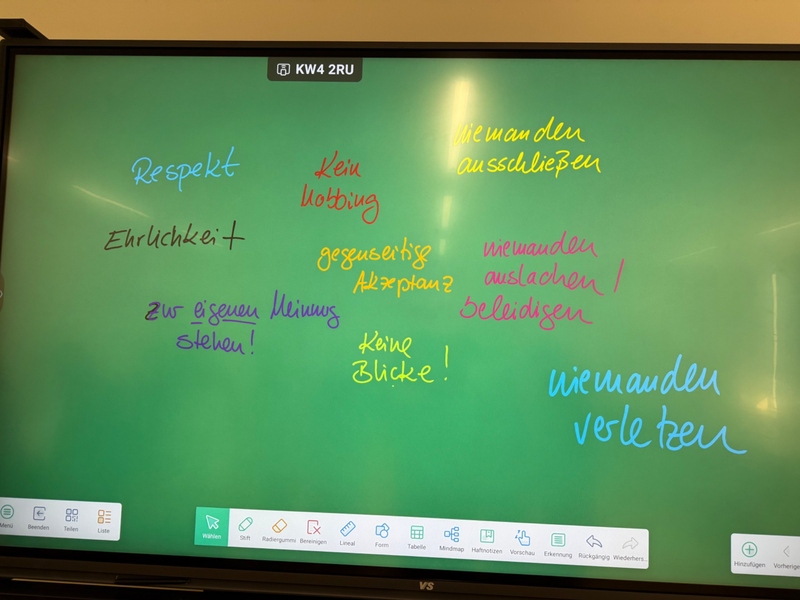 KW4 2RU
Respekt
Kein
Mobbing
niemanden
ausschließen
Ehrlichkeit
gegenseitige
Akzeptanz
niemanden
auslachen /
beleidigen
zur eigenen Meinung
stehen!
Keine
Blicke!
niemanden
verletzen
Menü
Beenden
Teilen
Liste
Wählen
Stift
Radiergummi
Bereinigen
Lineal
Form
Tabelle
Mindmap
Haftnotizen
Vorschau
Erkennung
Rückgängig
Wiederherz.
Hinzufügen
Vorherige
VS